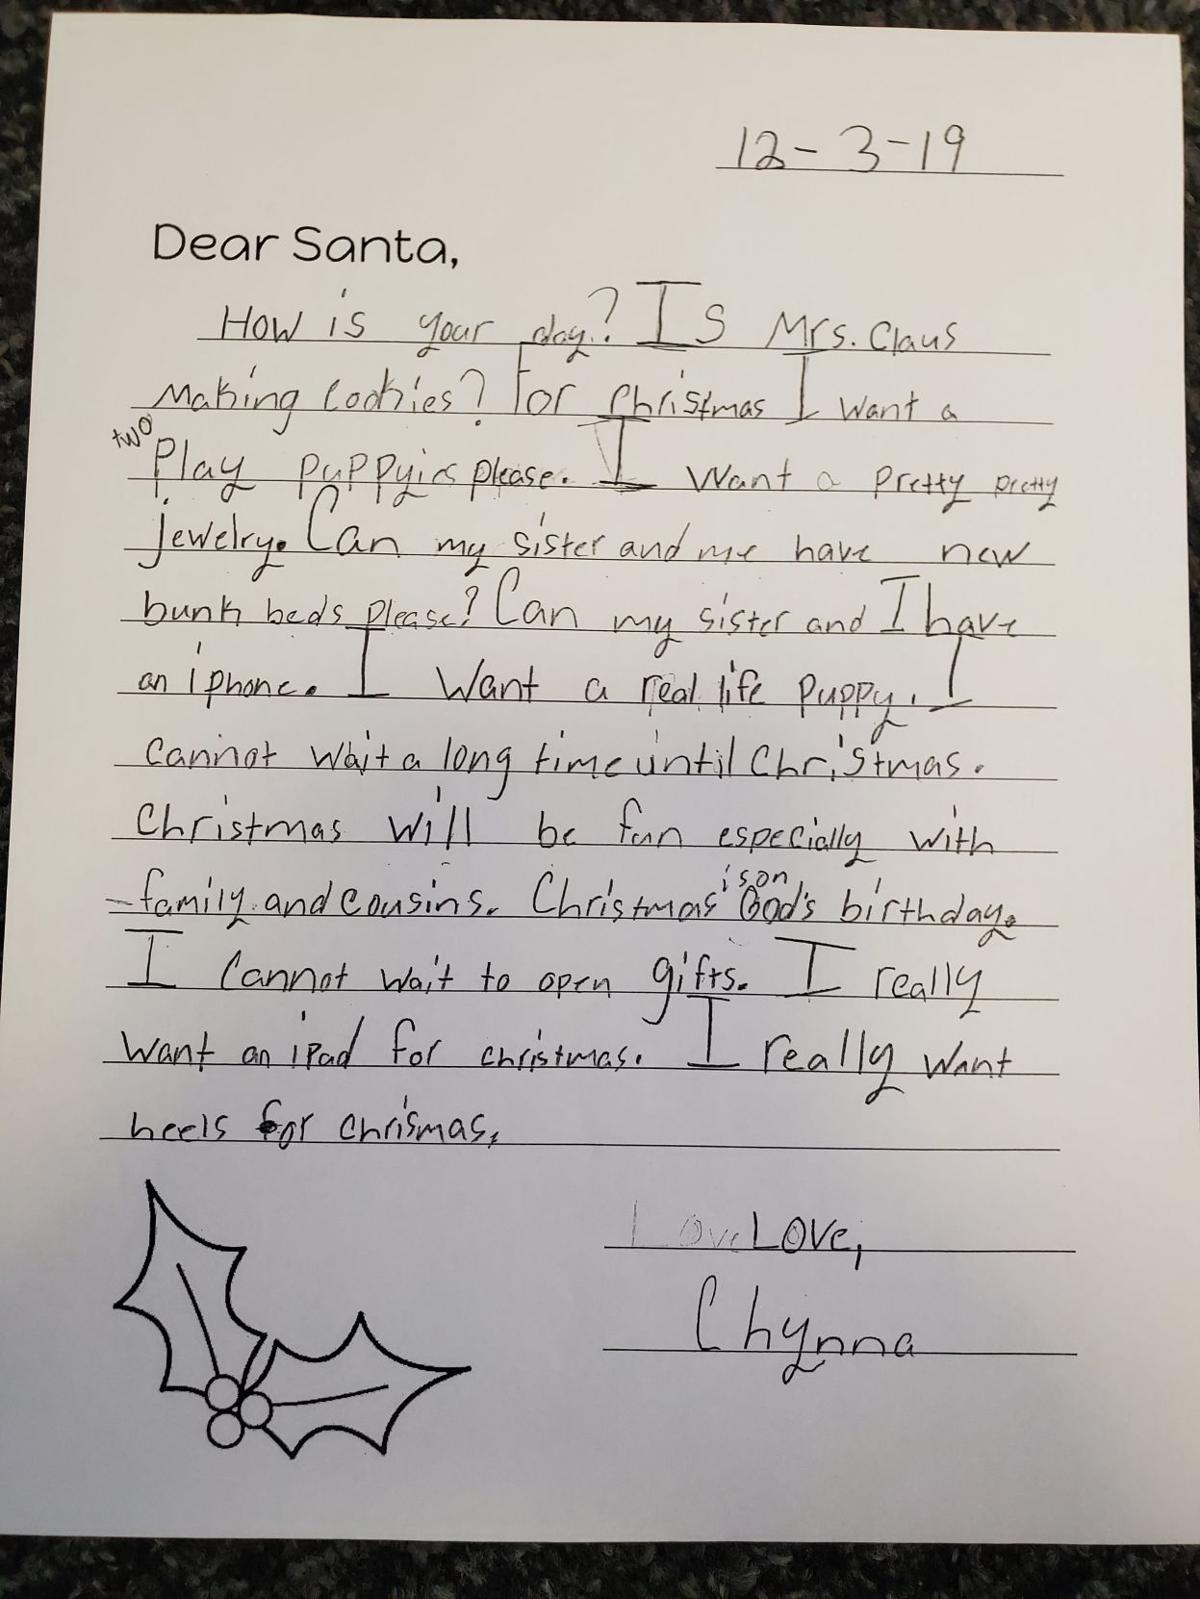 12-3-19
Dear Santa,
How is your day? Is Mrs. Claus
Making cookies? For christmas I want a
two
Play puppyies please. I want a pretty pretty
jewelry. Can my sister and me have new
bunk beds please? Can my sister and I have
an iphone. I want a real life puppy. I
cannot wait a long time until Christmas.
Christmas will be fun especially with
family and cousins. Christmas is on God's birthday.
I cannot wait to open gifts. I really
want an ipad for christmas. I really want
heels for chrismas.
Love Love,
Chynna